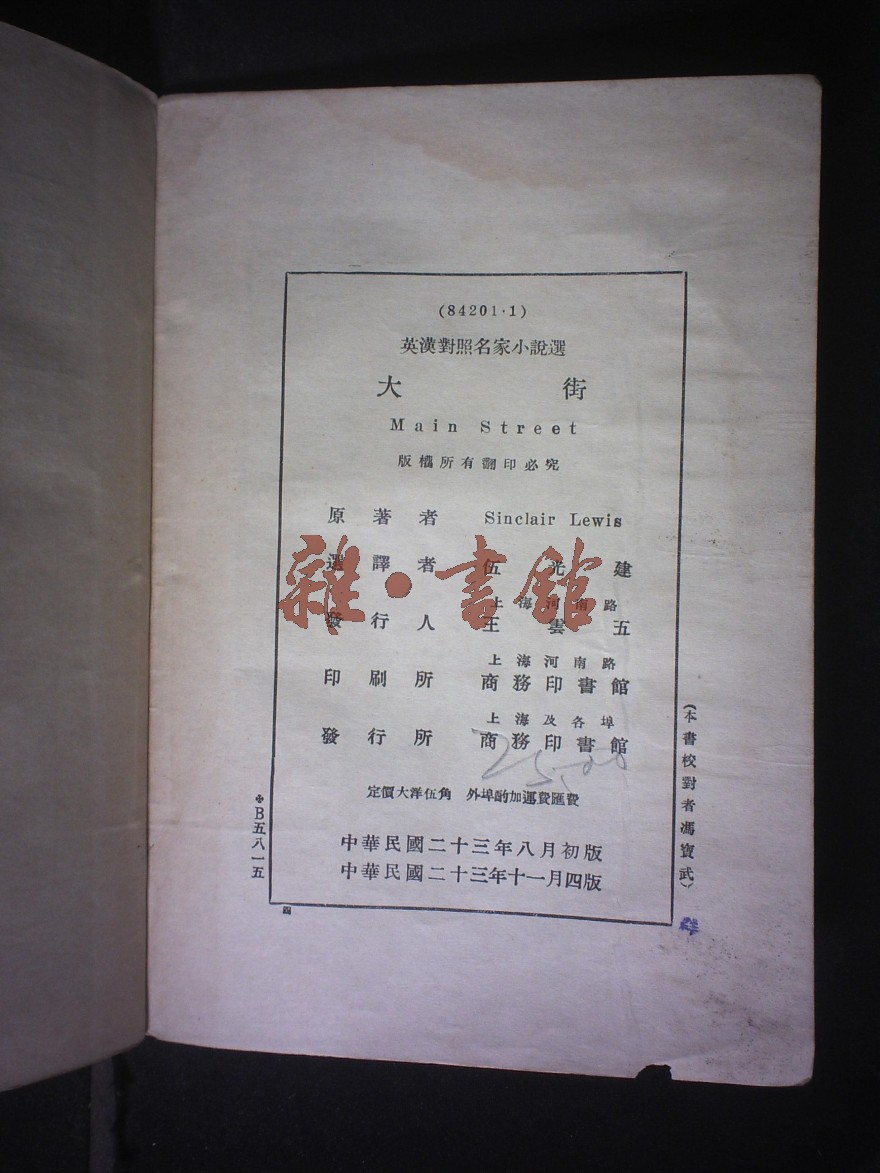 (84201·1)
英漢對照名家小說選
大街
Main Street
版權所有翻印必究
原著者 Sinclair Lewis
選譯者 伍光建
上海河南路
發行人 王雲五
上海河南路
印刷所 商務印書館
上海及各埠
發行所 商務印書館
25.00
定價大洋伍角 外埠酌加運費匯費
中華民國二十三年八月初版
中華民國二十三年十一月四版
(本書校對者馮寶武)
B五八一五
雜·書館